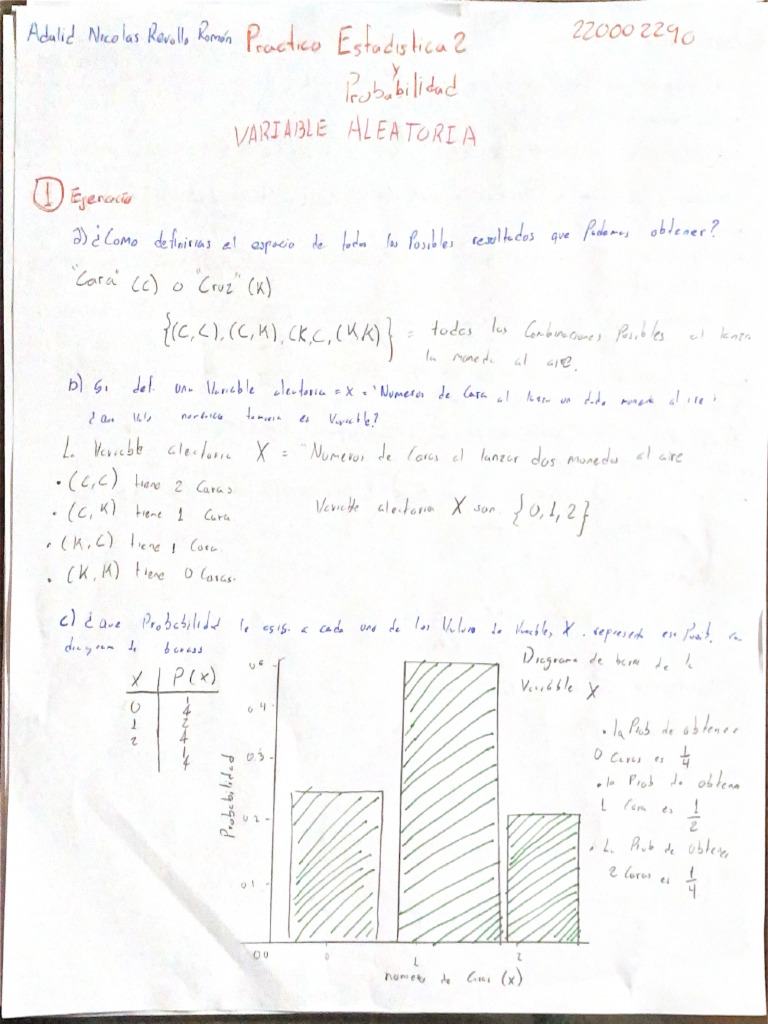 Adalid Nicolas Revollo Román Practico Estadistica 2 220002290
y
Probabilidad
VARIABLE ALEATORIA
1 Ejercicio
a) ¿Como definirias el espacio de todos los Posibles resultados que Podemos obtener?
"Cara" (C) o "Cruz" (K)
{(C,C),(C,K),(K,C,(K/K)} = todas las Combinaciones Posibles al lanza
la moneda al aire.
b) Si def. una Variable aleatoria = X = "Numeros de Cara al lanzar un dado moneda al aire
numerica tomaria es Variable?
L. Variable aleatoria X = "Numeros de Caras al lanzar dos monedas al aire
• (C,C) tiene 2 Caras
• (C,K) tiene 1 Cara
Variable aleatoria X son {0,1,2}
• (K,C) tiene 1 Cara.
• (K,K) tiene 0 Caras.
c) ¿Que Probabilidad le asig. a cada uno de los Valores de Variables X. representa esa
diagram de barras
X P(X)
0 1/4
1 2/4
2 1/4
Diagrama de barras de la
Variable X
0.4
0.3
0.2
0.1
00
Probabilidad
0 1 2
numeros de Caras (X)
• la Prob de obtener
0 Caras es 1/4
• la Prob de obtener
1 Cara es 1/2
• L. Prob de obtener
2 Caras es 1/4